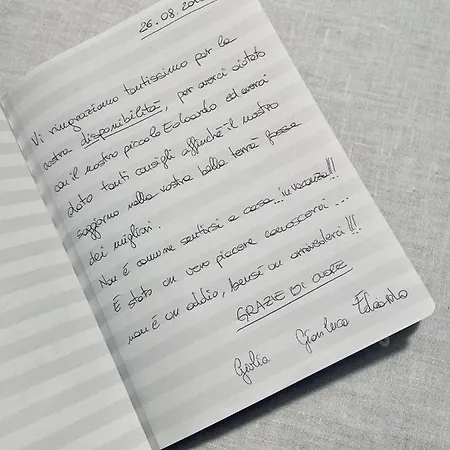 26.08.20
Vi ringraziamo tantissimo per la
vostra disponibilità, per averci aiutato
con il nostro piccolo Edoardo ed averci
dato tanti consigli affinché il nostro
soggiorno nella vostra bella terra fosse
dei migliori.
Non è comune sentirsi a casa... in vacanza!!!
È stato un vero piacere conoscervi ...
non è un addio, bensì un arrivederci!!!
GRAZIE DI CUORE
Giulia Gianluca Edoardo